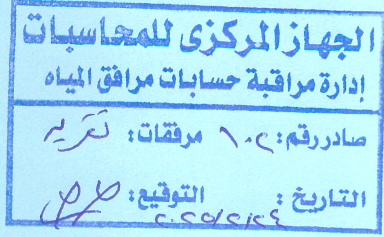 الجهاز المركزى للمحاسبات
إدارة مراقبة حسابات مرافق المياه
صادر رقم: ١٠٢ مرفقات: تقرير
التاريخ: ٢٠٢٥/٢/٢٤ التوقيع: